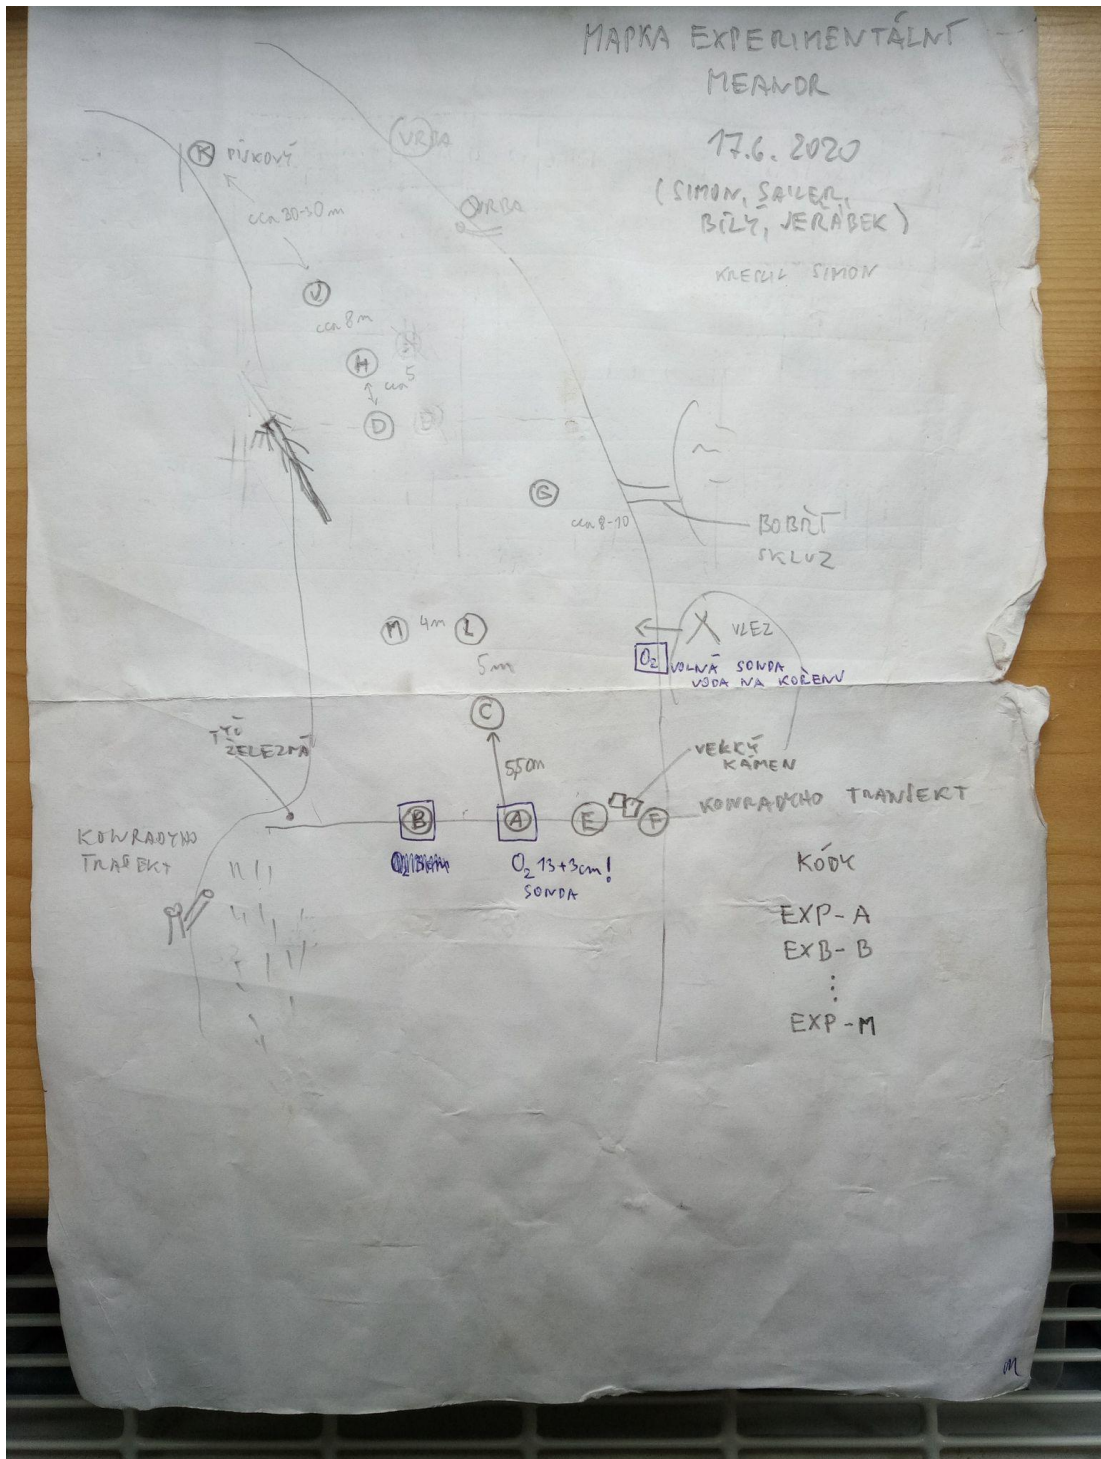 MAPKA EXPERIMENTÁLNÍ
MEANDR
17.6. 2020
(SIMON, SAILER,
BÍLÝ, JEŘÁBEK)
KRESLIL SIMON
VRBA
VRBA
K PÍSKOVÝ
cca 20-30 m
J
cca 8 m
H
cca 5
D
G
cca 8-10
BOBŘÍ
SKLUZ
M 4m L
5m
VLEZ
O2 VOLNÁ SONDA
VODA NA KOŘENU
C
5,5m
TYČ
ŽELEZNÁ
VELKÝ
KÁMEN
KONRADYHO TRANSEKT
B A E F
KONRADYHO
TRASEKT
O2 13+3cm!
SONDA
KÓDY
EXP-A
EXB-B
EXP-M
M